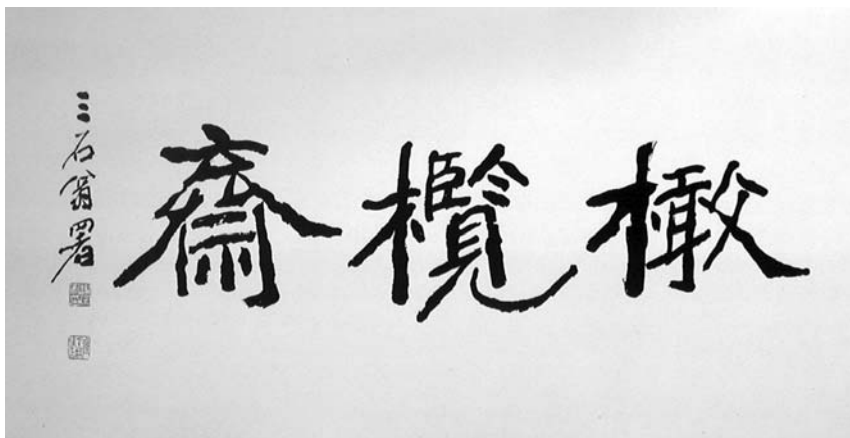 橄欖齋
三石翁署